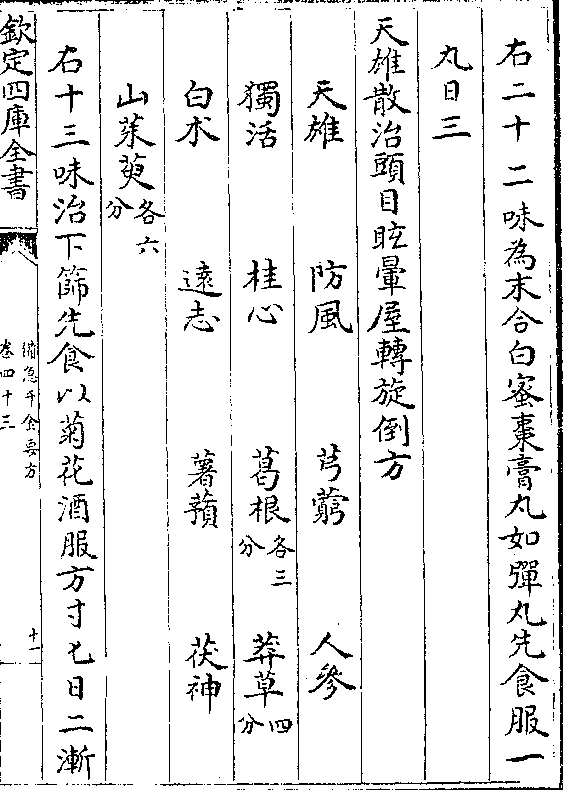 右二十二味為末合白蜜棗膏丸如彈丸先食服一
丸日三
天雄散治頭目眩暈屋轉旋倒方
天雄 防風 芎藭 人參
獨活 桂心 葛根各三分 莽草四分
白术 遠志 薯蕷 茯神
山茱萸各六分
右十三味治下篩先食以菊花酒服方寸匕日二漸
欽定四庫全書
備急千金要方
卷四十三
十一